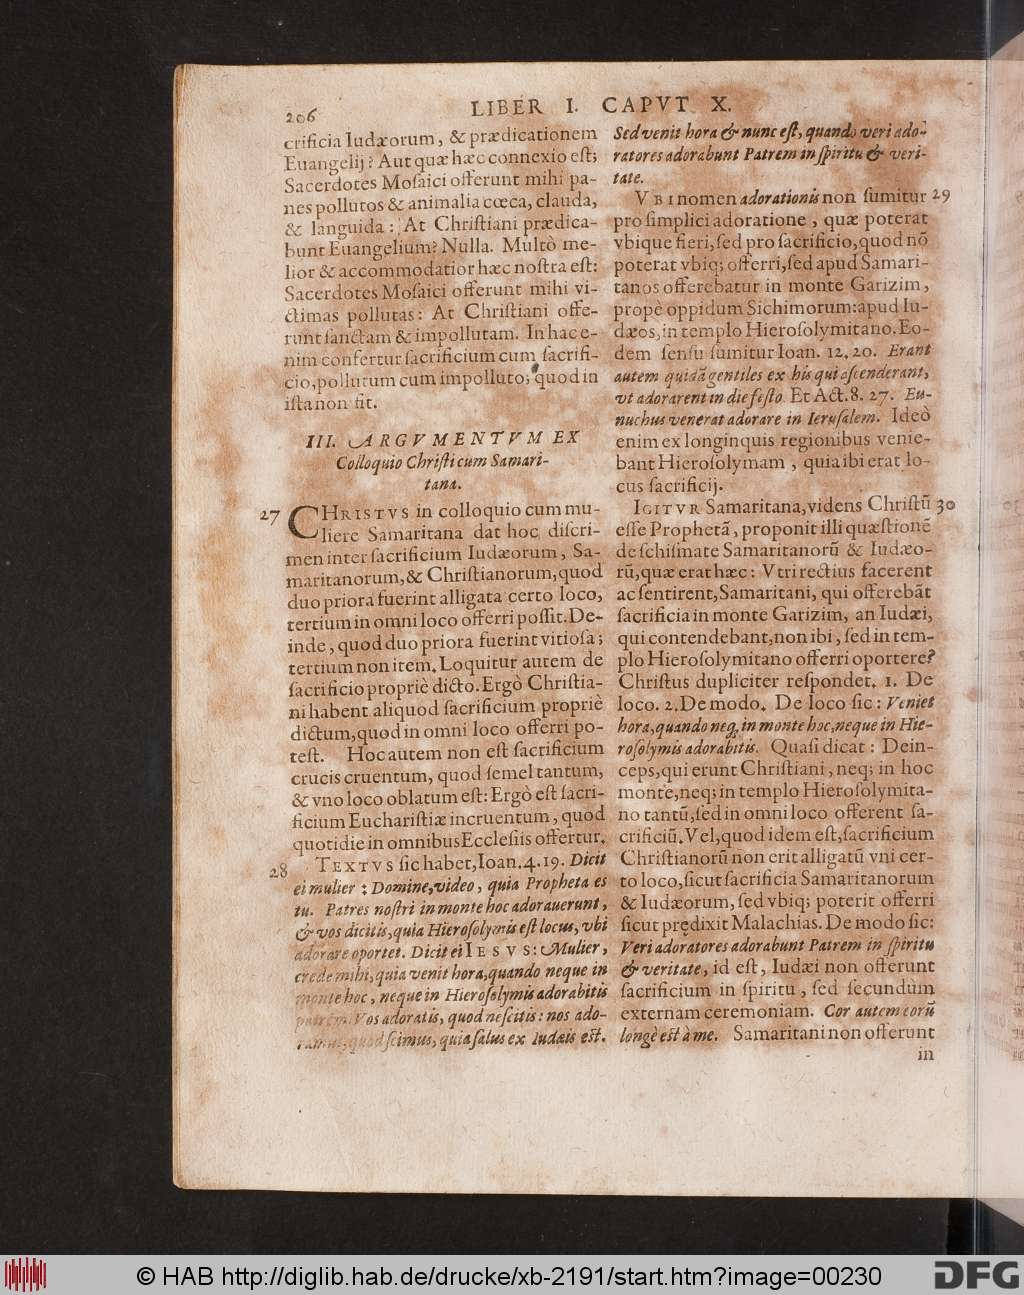 206
LIBER I. CAPVT X.
crificia Iudæorum, & prædicationem
Euangelij? Aut quæ hæc connexio eſt;
Sacerdotes Moſaici offerunt mihi pa-
nes pollutos & animalia cœca, clauda,
& languida: At Chriſtiani prædica-
bunt Euangelium? Nulla. Multò me-
lior & accommodatior hæc noſtra eſt:
Sacerdotes Moſaici offerunt mihi vi-
ctimas pollutas: At Chriſtiani offe-
runt ſanctam & impollutam. In hac e-
nim confertur ſacrificium cum ſacrifi-
cio, pollutum cum impolluto; quod in
iſta non fit.
III. ARGVMENTVM EX
Colloquio Chriſti cum Samari-
tana.
27 CHRISTVS in colloquio cum mu-
liere Samaritana dat hoc diſcri-
men inter ſacrificium Iudæorum, Sa-
maritanorum, & Chriſtianorum, quod
duo priora fuerint alligata certo loco,
tertium in omni loco offerri poſſit. De-
inde, quod duo priora fuerint vitioſa;
tertium non item. Loquitur autem de
ſacrificio propriè dicto. Ergò Chriſtia-
ni habent aliquod ſacrificium propriè
dictum, quod in omni loco offerri po-
teſt. Hoc autem non eſt ſacrificium
crucis cruentum, quod ſemel tantum,
& vno loco oblatum eſt: Ergò eſt ſacri-
ficium Euchariſtiæ incruentum, quod
quotidie in omnibus Eccleſiis offertur.
28 TEXTVS ſic habet, Ioan. 4. 19. Dicit
ei mulier: Domine, video, quia Propheta es
tu. Patres noſtri in monte hoc adorauerunt,
& vos dicitis, quia Hieroſolymis eſt locus, vbi
adorare oportet. Dicit ei IESVS: Mulier,
crede mihi, quia venit hora, quando neque in
monte hoc, neque in Hieroſolymis adorabitis
patrem. Vos adoratis, quod neſcitis: nos ado-
ramus, quod ſcimus, quia ſalus ex Iudæis eſt.
Sed venit hora & nunc eſt, quando veri ado-
ratores adorabunt Patrem in ſpiritu & veri-
tate.
VBI nomen adorationis non ſumitur 29
pro ſimplici adoratione, quæ poterat
vbique fieri, ſed pro ſacrificio, quod nō
poterat vbiq; offerri, ſed apud Samari-
tanos offerebatur in monte Garizim,
propè oppidum Sichimorum: apud Iu-
dæos, in templo Hieroſolymitano. Eo-
dem ſenſu ſumitur Ioan. 12. 20. Erant
autem quidā gentiles ex his qui aſcenderant,
vt adorarent in die feſto. Et Act. 8. 27. Eu-
nuchus venerat adorare in Ieruſalem. Ideò
enim ex longinquis regionibus venie-
bant Hieroſolymam, quia ibi erat lo-
cus ſacrificij.
IGITVR Samaritana, videns Chriſtū 30
eſſe Prophetā, proponit illi quæſtionē
de ſchiſmate Samaritanorū & Iudæo-
rū, quæ erat hæc: Vtri rectius facerent
ac ſentirent, Samaritani, qui offerebāt
ſacrificia in monte Garizim, an Iudæi,
qui contendebant, non ibi, ſed in tem-
plo Hieroſolymitano offerri oportere?
Chriſtus dupliciter reſpondet. 1. De
loco. 2. De modo. De loco ſic: Veniet
hora, quando neq; in monte hoc, neque in Hie-
roſolymis adorabitis. Quaſi dicat: Dein-
ceps, qui erunt Chriſtiani, neq; in hoc
monte, neq; in templo Hieroſolymita-
no tantū, ſed in omni loco offerent ſa-
crificiū. Vel, quod idem eſt, ſacrificium
Chriſtianorū non erit alligatū vni cer-
to loco, ſicut ſacrificia Samaritanorum
& Iudæorum, ſed vbiq; poterit offerri
ſicut prędixit Malachias. De modo ſic:
Veri adoratores adorabunt Patrem in ſpiritu
& veritate, id eſt, Iudæi non offerunt
ſacrificium in ſpiritu, ſed ſecundùm
externam ceremoniam. Cor autem eorū
longè eſt à me. Samaritani non offerunt
in
© HAB http://diglib.hab.de/drucke/xb-2191/start.htm?image=00230
DFG